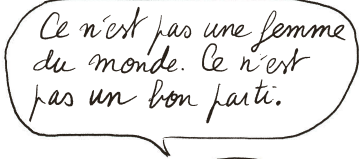 Ce n'est pas une femme
du monde. Ce n'est
pas un bon parti.